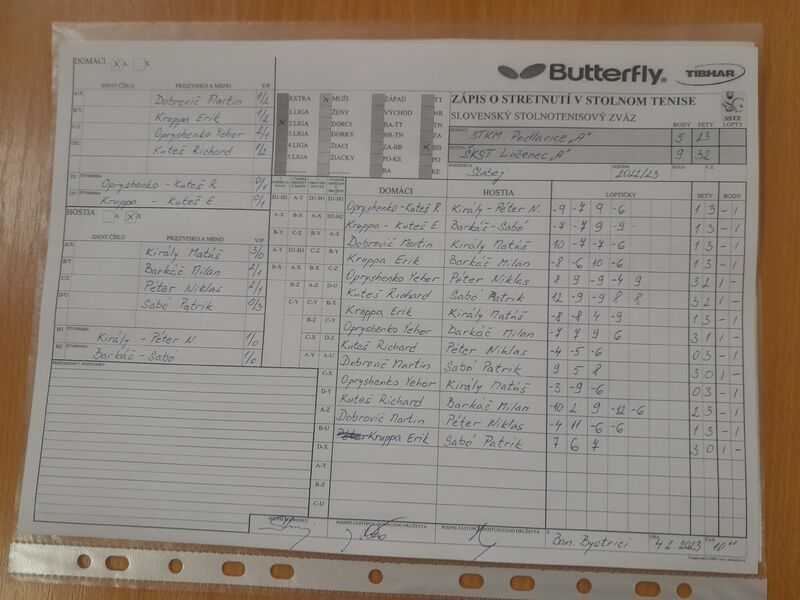 DOMÁCI X A X
Butterfly
TIBHAR
ZÁPIS O STRETNUTÍ V STOLNOM TENISE
SLOVENSKÝ STOLNOTENISOVÝ ZVÄZ
SSTZ
BODY SETY LOPTY
DOMÁCI STKM Podlavice „A" 5 23
HOSTIA ŠKST Lučenec „A" 9 32
Slabej SEZÓNA 2022/23
EXTRA X MUŽI ZÁPAD TT
1.LIGA ŽENY VÝCHOD NR
X 2.LIGA DORCI BA-TT TN
3.LIGA DORKY NR-TN ZA
4.LIGA ŽIACI ZA-BB X BB
5.LIGA ŽIAČKY PO-KE PO
BA KE
IDENT. ČÍSLO PRIEZVISKO A MENO V/P
A/X Dobrovič Martin 1/2
B/Y Kruppa Erik 1/2
C/Z Opryshenko Yehor 2/1
D/U Kuteš Richard 1/2
D1 Opryshenko - Kuteš R. 0/1
D2 Kruppa - Kuteš E 0/1
HOSTIA A X
IDENT. ČÍSLO PRIEZVISKO A MENO V/P
A/X Király Matúš 3/0
B/Y Barkáč Milan 2/1
C/Z Péter Niklas 2/1
D/U Sabó Patrik 0/3
H1 ŠTVORHRA Király - Péter N. 1/0
H2 ŠTVORHRA Barkáč - Sabó 1/0
DOMÁCI HOSTIA LOPTIČKY SETY BODY
Opryshenko - Kuteš R Király - Péter N. -9 -7 9 -6 1 3 - 1
Kruppa - Kuteš E Barkáč - Sabó -7 -7 9 -9 1 3 - 1
Dobrovič Martin Király Matúš 10 -7 -7 -6 1 3 - 1
Kruppa Erik Barkáč Milan -8 -6 10 -6 1 3 - 1
Opryshenko Yehor Péter Niklas 8 9 -9 -4 9 3 2 1 -
Kuteš Richard Sabó Patrik 12 -9 -9 8 8 3 2 1 -
Kruppa Erik Király Matúš -8 -8 4 -9 1 3 - 1
Opryshenko Yehor Barkáč Milan -7 7 9 6 3 1 1 -
Kuteš Richard Péter Niklas -4 -5 -6 0 3 - 1
Dobrovič Martin Sabó Patrik 9 5 8 3 0 1 -
Opryshenko Yehor Király Matúš -3 -9 -6 0 3 - 1
Kuteš Richard Barkáč Milan -10 2 9 -12 -6 2 3 - 1
Dobrovič Martin Péter Niklas -4 11 -6 -6 1 3 - 1
Péter Kruppa Erik Sabó Patrik 7 6 7 3 0 1 -
PODPIS ROZHODCU
PODPIS ZÁSTUPCU DOMÁCEHO DRUŽSTVA
PODPIS ZÁSTUPCU HOSŤUJÚCEHO DRUŽSTVA
V Ban. Bystrici DŇA 4.2.2023 ČAS 10⁰⁰